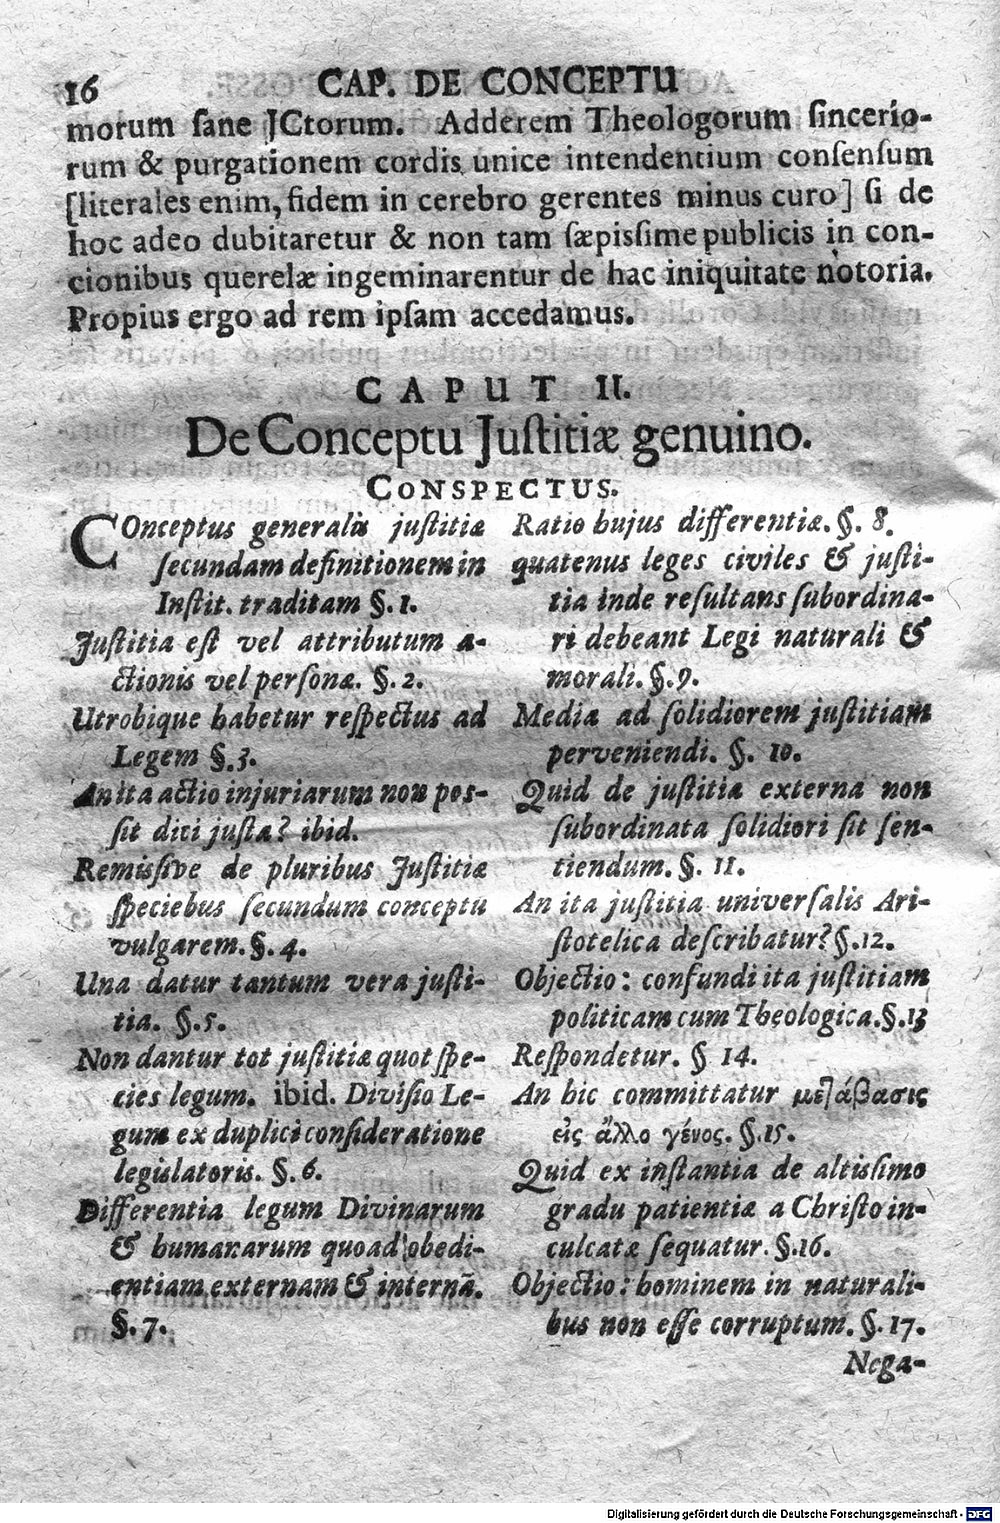 16 CAP. DE CONCEPTU
morum ſane JCtorum. Adderem Theologorum ſincerio-
rum & purgationem cordis unice intendentium conſenſum
[literales enim, fidem in cerebro gerentes minus curo] ſi de
hoc adeo dubitaretur & non tam ſæpiſſime publicis in con-
cionibus querelæ ingeminarentur de hac iniquitate notoria.
Propius ergo ad rem ipſam accedamus.
CAPUT II.
De Conceptu Juſtitiæ genuino.
CONSPECTUS.
COnceptus generalis juſtitiæ
ſecundam definitionem in
Inſtit. traditam §. 1.
Juſtitia eſt vel attributum a-
ctionis vel perſonæ. §. 2.
Utrobique habetur reſpectus ad
Legem §. 3.
An ita actio injuriarum non poſ-
ſit dici juſta? ibid.
Remiſſive de pluribus Juſtitiæ
ſpeciebus ſecundum conceptu
vulgarem. §. 4.
Una datur tantum vera juſti-
tia. §. 5.
Non dantur tot juſtitiæ quot ſpe-
cies legum. ibid. Diviſio Le-
gum ex duplici conſideratione
legislatoris. §. 6.
Differentia legum Divinarum
& humanarum quoad obedi-
entiam externam & internã.
§. 7.
Ratio hujus differentiæ. §. 8.
quatenus leges civiles & juſti-
tia inde reſultans ſubordina-
ri debeant Legi naturali &
morali. §. 9.
Media ad ſolidiorem juſtitiam
perveniendi. §. 10.
Quid de juſtitia externa non
ſubordinata ſolidiori ſit ſen-
tiendum. §. 11.
An ita juſtitia univerſalis Ari-
ſtotelica deſcribatur? §. 12.
Objectio: confundi ita juſtitiam
politicam cum Theologica. §. 13
Reſpondetur. § 14.
An hic committatur μετάβασις
εἰς ἄλλο γένος. §. 15.
Quid ex inſtantia de altiſſimo
gradu patientiæ a Chriſto in-
culcatæ ſequatur. §. 16.
Objectio: hominem in naturali-
bus non eſſe corruptum. §. 17.
Nega-
Digitalisierung gefördert durch die Deutsche Forschungsgemeinschaft - DFG